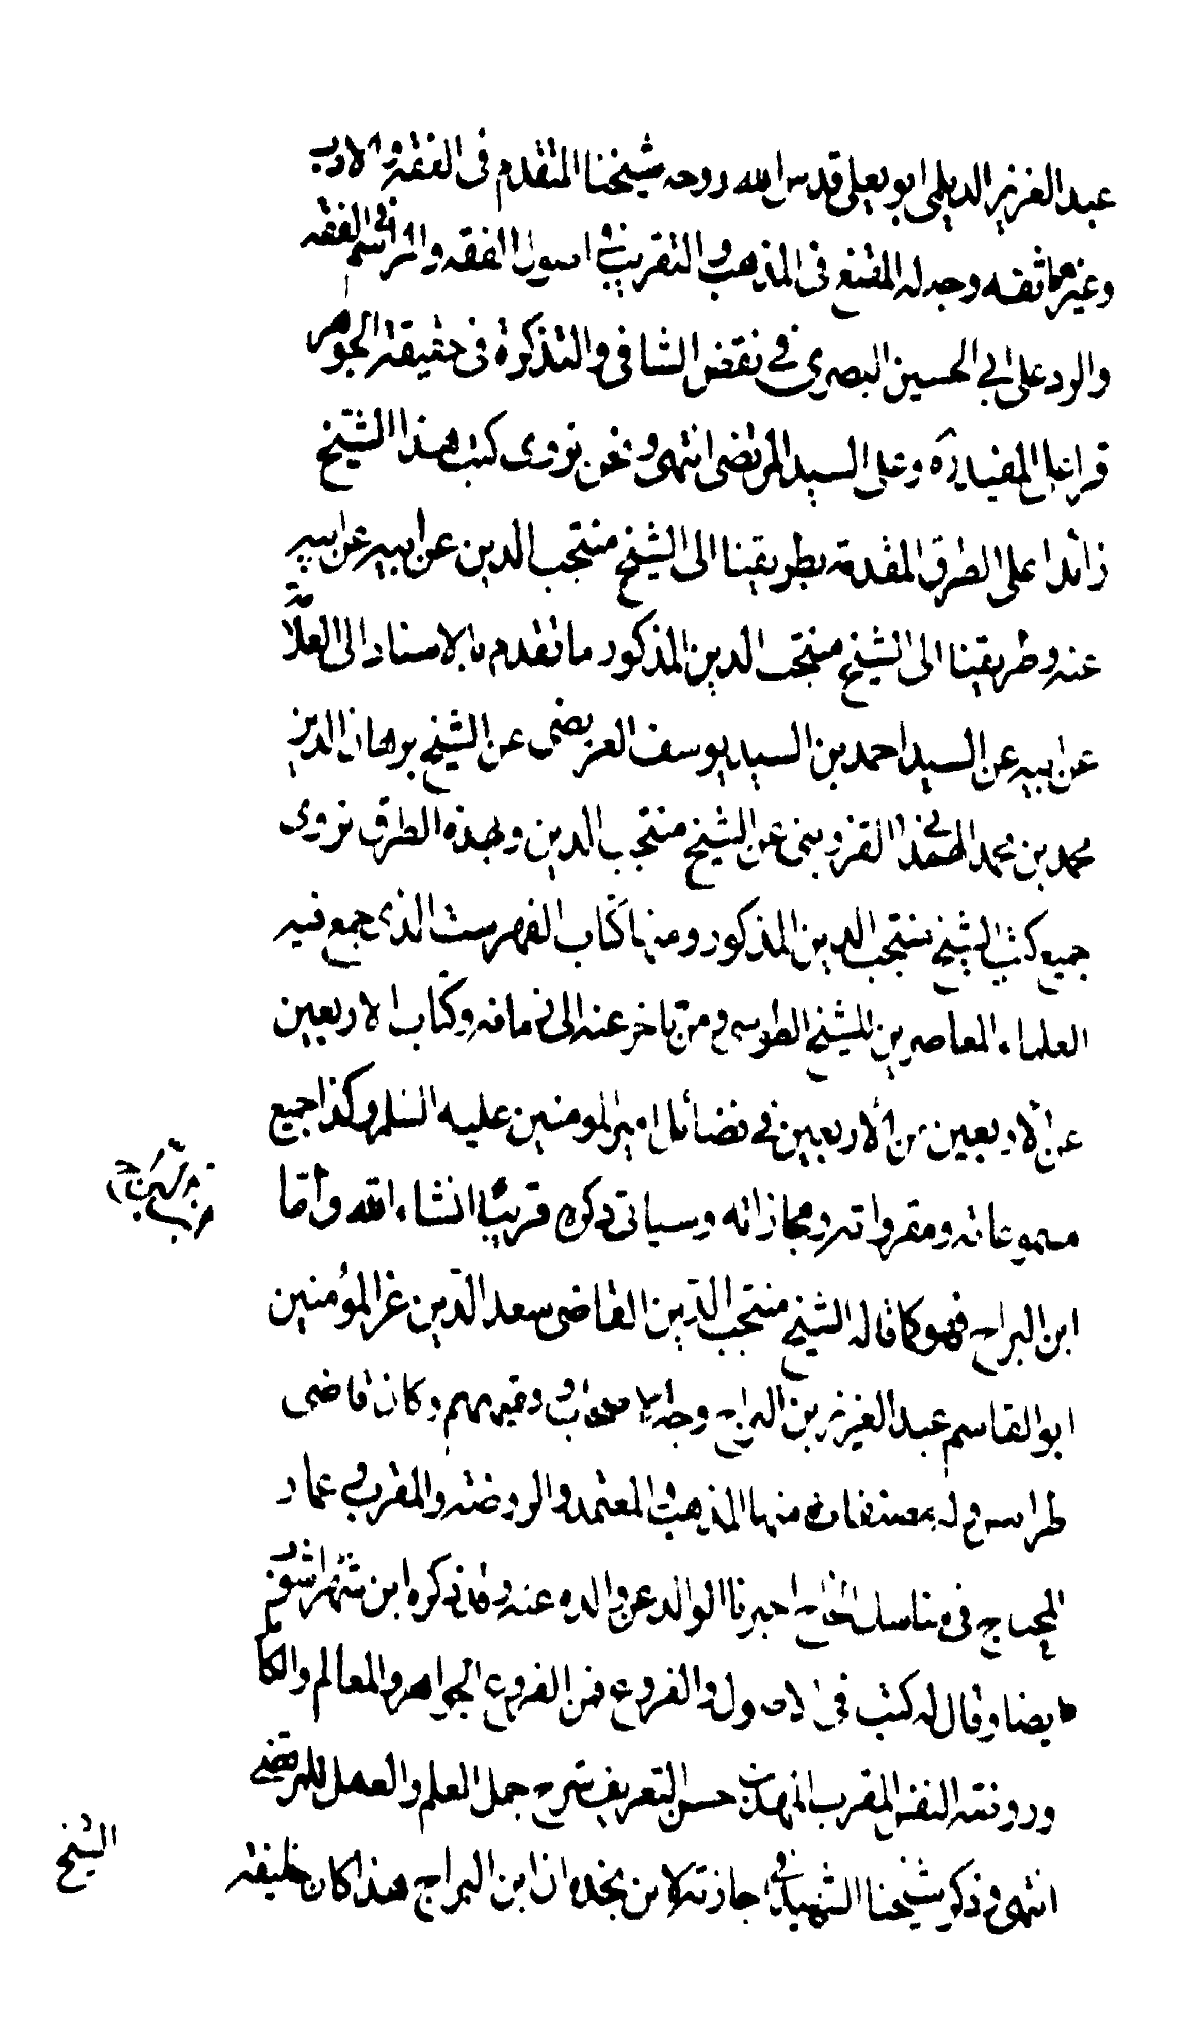 عبد العزيز الديلمي ابو يعلى قدس الله روحه شيخنا المتقدم في الفقه والادب
وغيرهما ثقه وجه له المقنع في المذهب والتقريب في اصول الفقه والمراسم في الفقه
والرد على ابي الحسين البصري في نقض الشافي والتذكرة في حقيقة الجوهر
قرا على المفيد ره وعلى السيد المرتضى انتهى ونحن نروى كتب هذا الشيخ
زائدا على الطرق المقدمة بطريقنا الى الشيخ منتجب الدين عن ابيه عن ابيه
عنه وطريقنا الى الشيخ منتجب الدين المذكور ما تقدم بالاسناد الى العلّامة
عن ابيه عن السيد احمد بن السيد يوسف العريضى عن الشيخ برهان الدين
محمد بن محمد الهمداني القزوينى عن الشيخ منتجب الدين وبهذه الطرق نروى
جميع كتب الشيخ منتجب الدين المذكور ومنها كتاب الفهرست الذي جمع فيه
العلماء المعاصرين للشيخ الطوسي ومن تاخر عنه الى زمانه وكتاب الاربعين
عن الاربعين من الاربعين في فضائل امير المومنين عليه السلم وكذا جميع
مسموعاته ومقرواته ومجازاته وسياتي ذكره قريبًا انشاء الله وأمّا
ابن البراج فهو كما قاله الشيخ منتجب الدّين القاضى سعد الدّين عز المؤمنين
ابو القاسم عبد العزيز بن البراج وجه الاصحاب وفقيههم وكان قاضى
طرابلس وله مصنفات منها المذهب والمعتمد والروضة والمقرب وعماد
المحتاج في مناسك الحاج اخبرنا الوالد عن والده عنه وقد ذكره ابن شهراشوب
ايضا وقال له كتب في الاصول والفروع فمن الفروع الجواهر والمعالم والكامل
وروضة النفس المقرب المهذب حسن التعريف شرح جمل العلم والعمل للمرتضى
انتهى وذكر شيخنا الشهيد في اجازته لابن نجده ان ابن البراج هذا كان خليفة
الشيخ